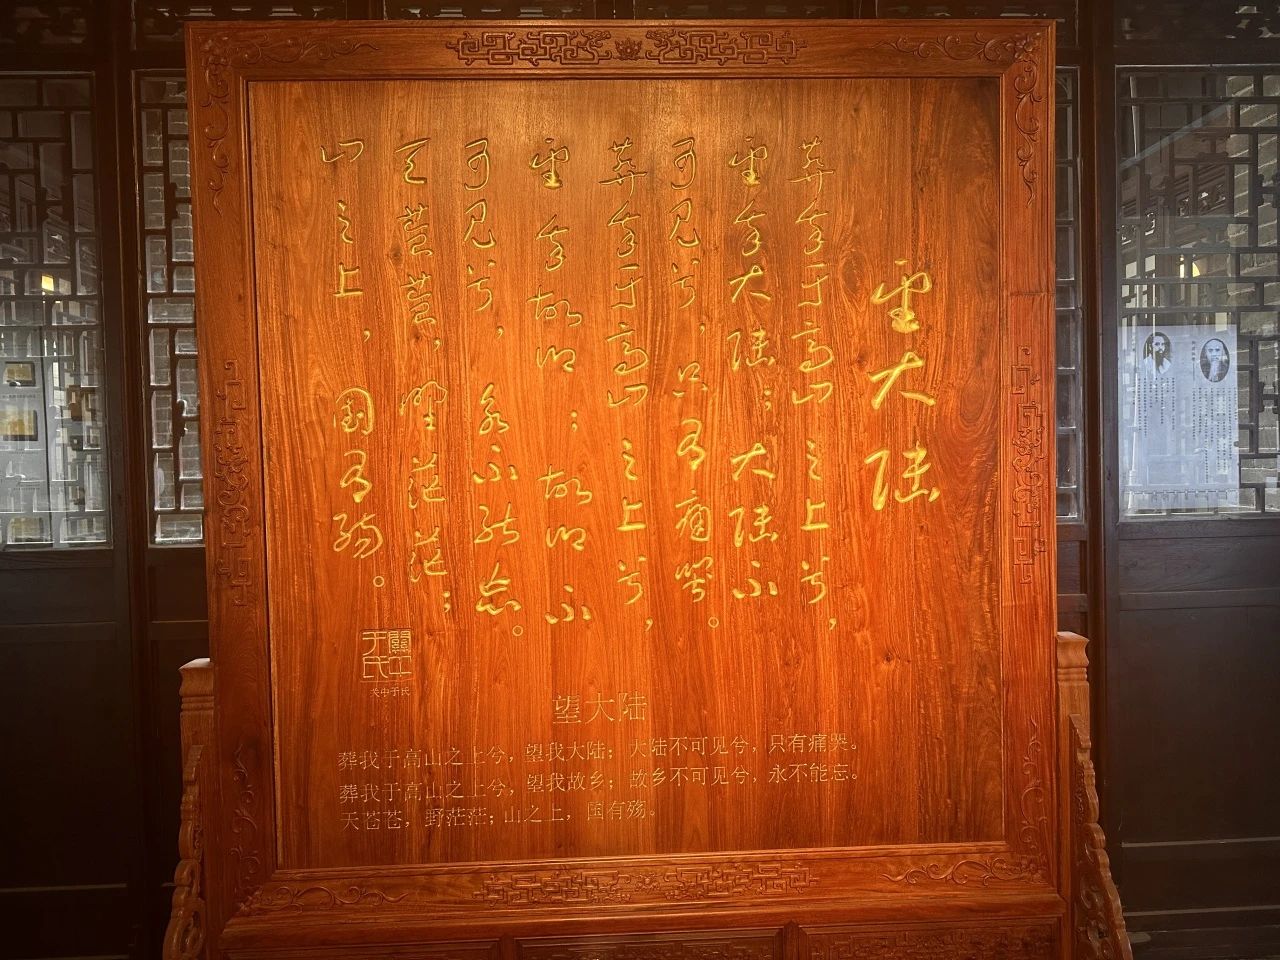 望大陆
葬我于高山之上兮，
望我大陆；大陆不
可见兮，只有痛哭。
葬我于高山之上兮，
望我故乡；故乡不
可见兮，永不能忘。
天苍苍，野茫茫；
山之上，国有殇。
关中于氏
望大陆
葬我于高山之上兮，望我大陆；大陆不可见兮，只有痛哭。
葬我于高山之上兮，望我故乡；故乡不可见兮，永不能忘。
天苍苍，野茫茫；山之上，国有殇。